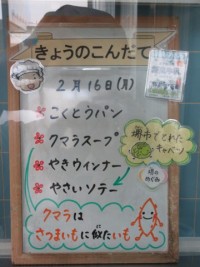 きょうのこんだて
2月16日(月)
こくとうパン
クマラスープ
やきウィンナー
やさいソテー
堺市でとれた
キャベツ
クマラは
さつまいもに似たいも